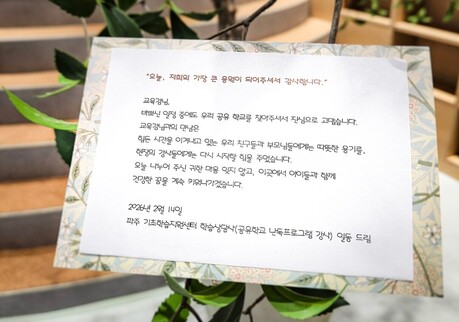 "오늘, 저희의 가장 큰 응원이 되어주셔서 감사합니다."
교육감님,
바쁘신 일정 중에도 우리 공유 학교를 찾아주셔서 진심으로 고맙습니다.
교육감님과의 만남은
힘든 시간을 이겨내고 있는 우리 친구들과 부모님들에게는 따뜻한 용기를,
현장의 강사들에게는 다시 시작할 힘을 주었습니다.
오늘 나누어 주신 귀한 마음 잊지 않고, 이곳에서 아이들과 함께
건강한 꿈을 계속 키워나가겠습니다.
2026년 2월 14일
파주 기초학습지원센터 학습상담사(공유학교 난독프로그램 강사) 일동 드림